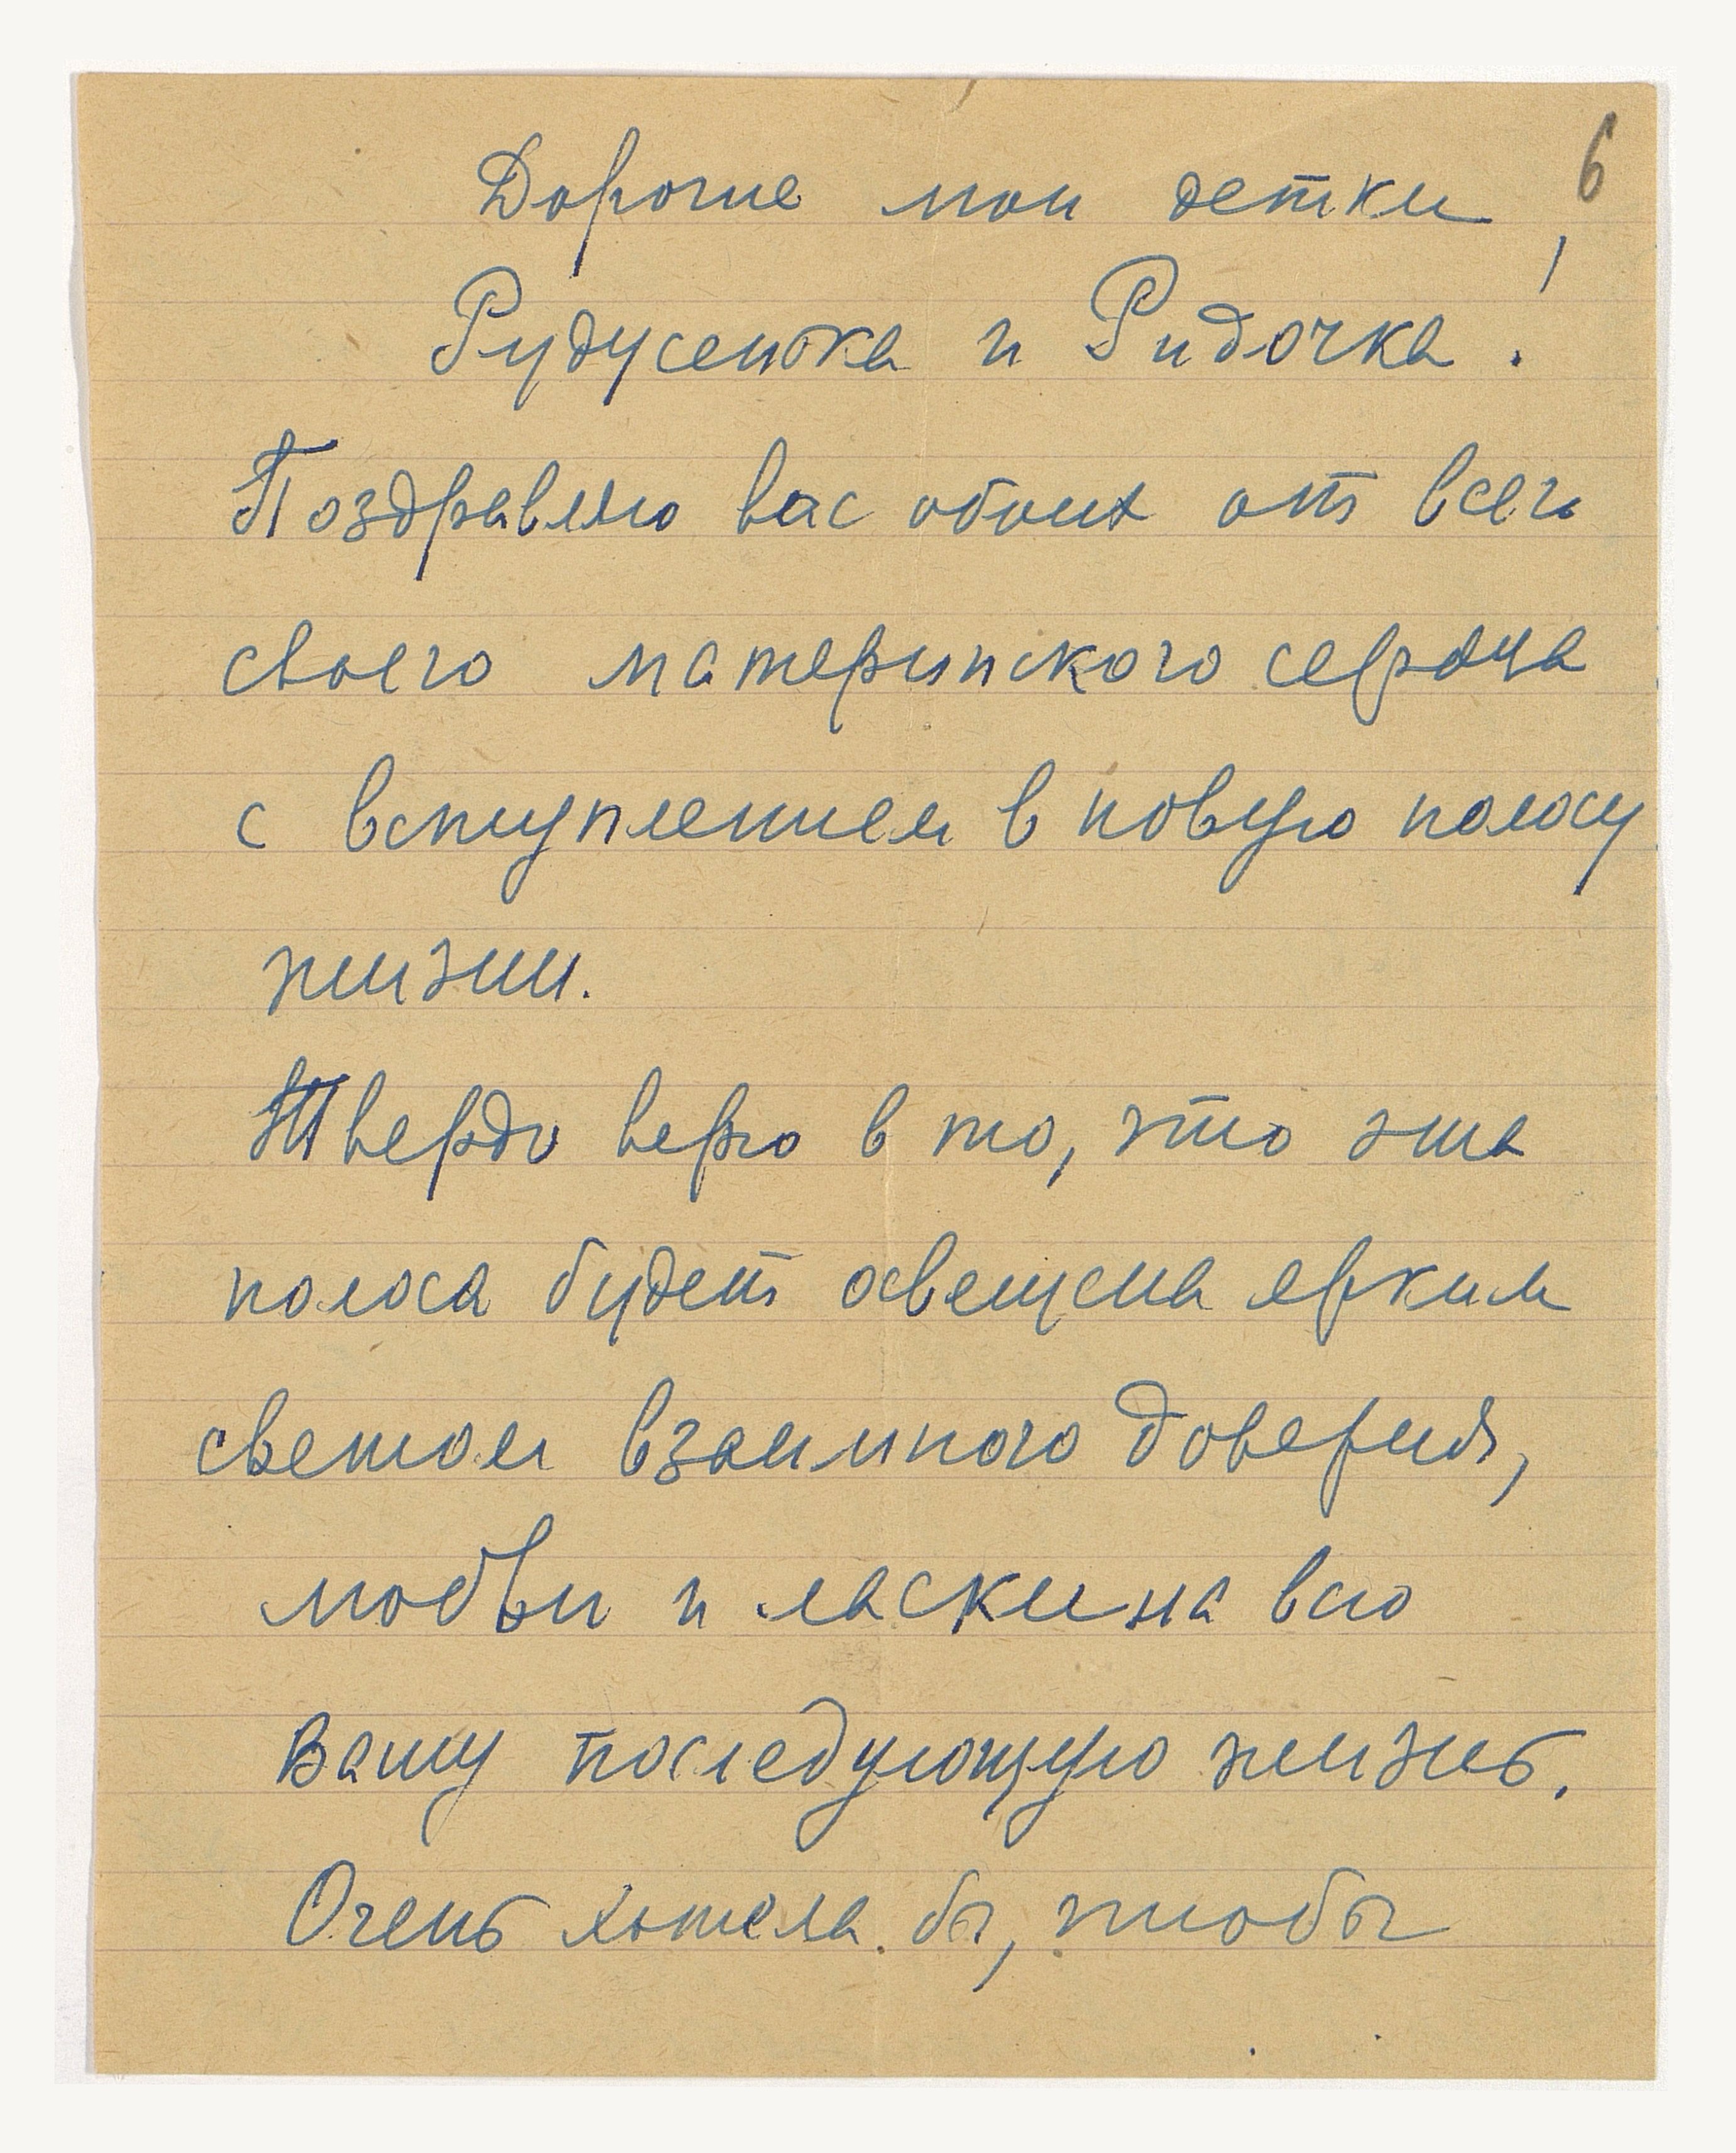 6
Дорогие мои детки
Рудусенька и Ридочка!
Поздравляю вас обоих от всего
своего материнского сердца
с вступлением в новую полосу
жизни.
Твердо верю в то, что эта
полоса будет освещена ярким
светом взаимного доверия,
любви и ласки на всю
вашу последующую жизнь.
Очень хотела бы, чтобы